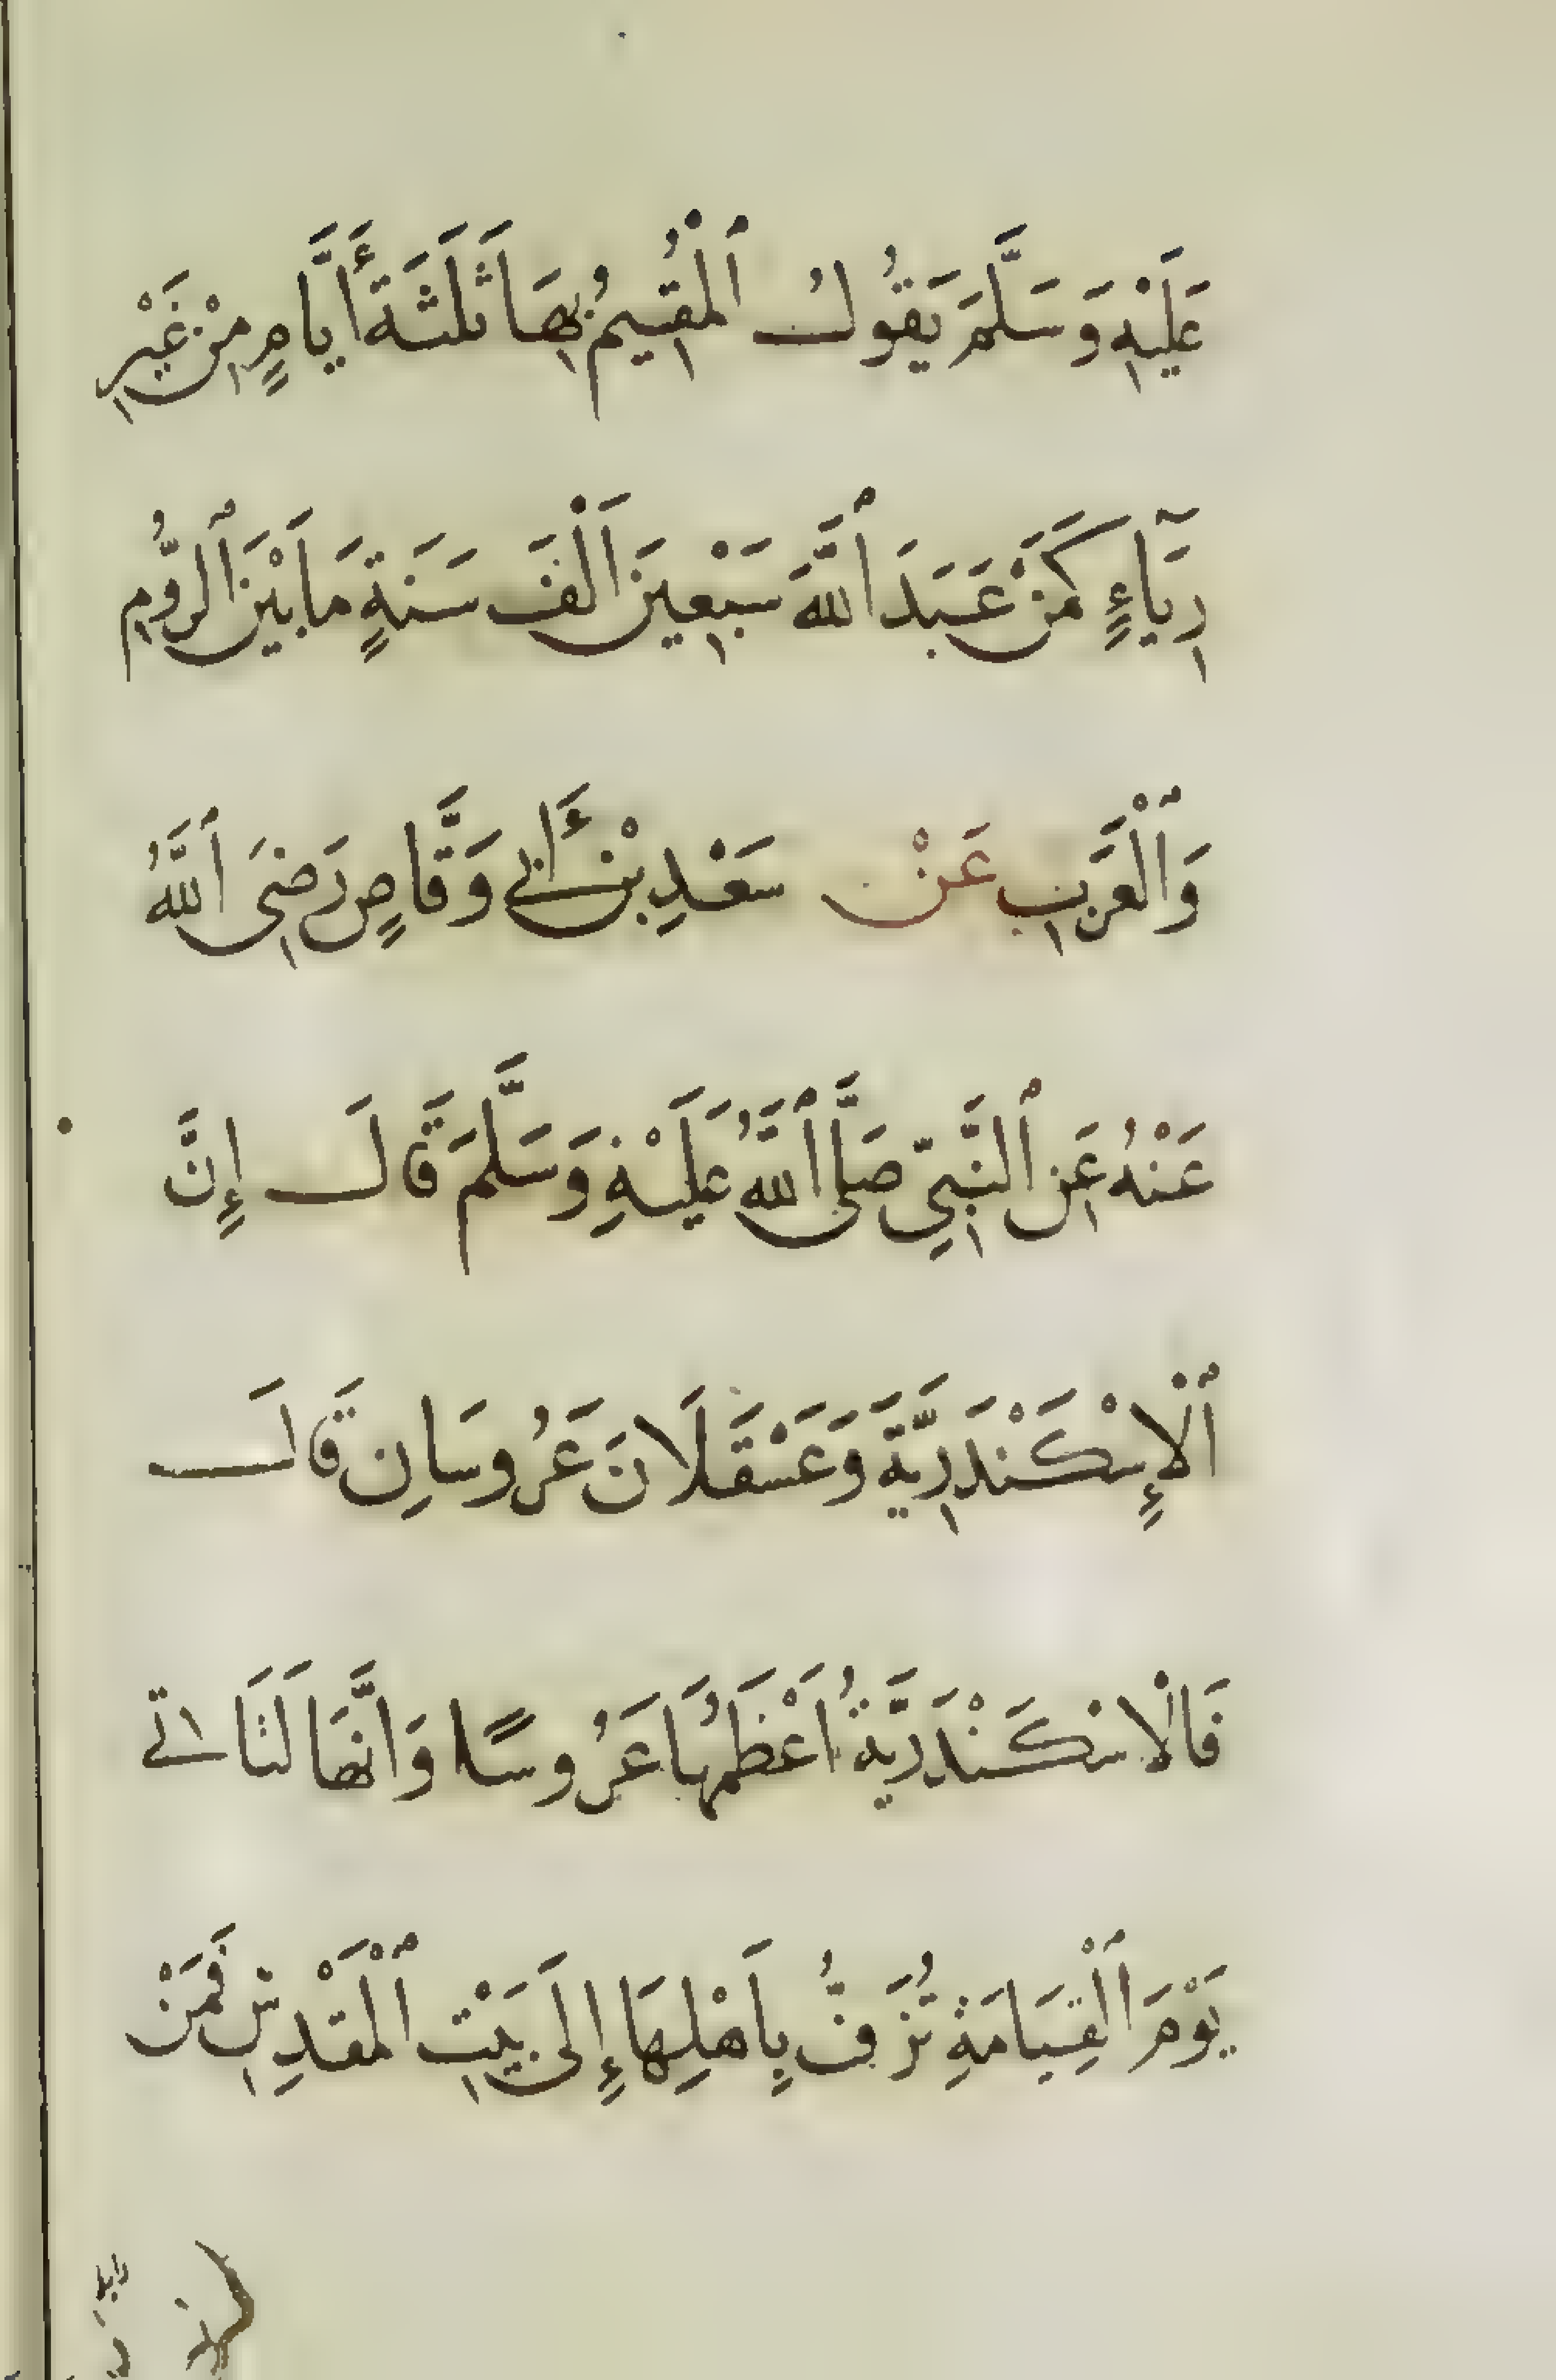 عَلَيْهِ وَسَلَّمَ يَقُولُ ٱلْمُقِيمُ بِهَا ثَلَثَةَ أَيَّامٍ مِنْ غَيْرِ
رِيَآءٍ كَمَنْ عَبَدَ ٱللَّهَ سَبْعِينَ اَلْفَ سَنَةٍ مَا بَيْنَ ٱلرُّومِ
وَٱلْعَرَبِ عَنْ سَعْدِ بْنِ أَبِي وَقَّاصٍ رَضِىَ ٱللَّهُ
عَنْهُ عَنِ ٱلنَّبِيِّ صَلَّى ٱللَّهُ عَلَيْهِ وَسَلَّمَ قَالَ إِنَّ
ٱلْإِسْكَنْدَرِيَّةَ وَعَسْقَلَانَ عَرُوسَانِ قَالَ
فَالْاسْكَنْدَرِيَّةُ اَعْظَمُهَا عَرُوسًا وَاَنَّهَا لَتَاتى
يَوْمَ ٱلْقِيَامَةِ تُزَفُّ بِاَهْلِهَا إِلَى بَيْتِ ٱلْمَقْدِسِ فَمَنْ